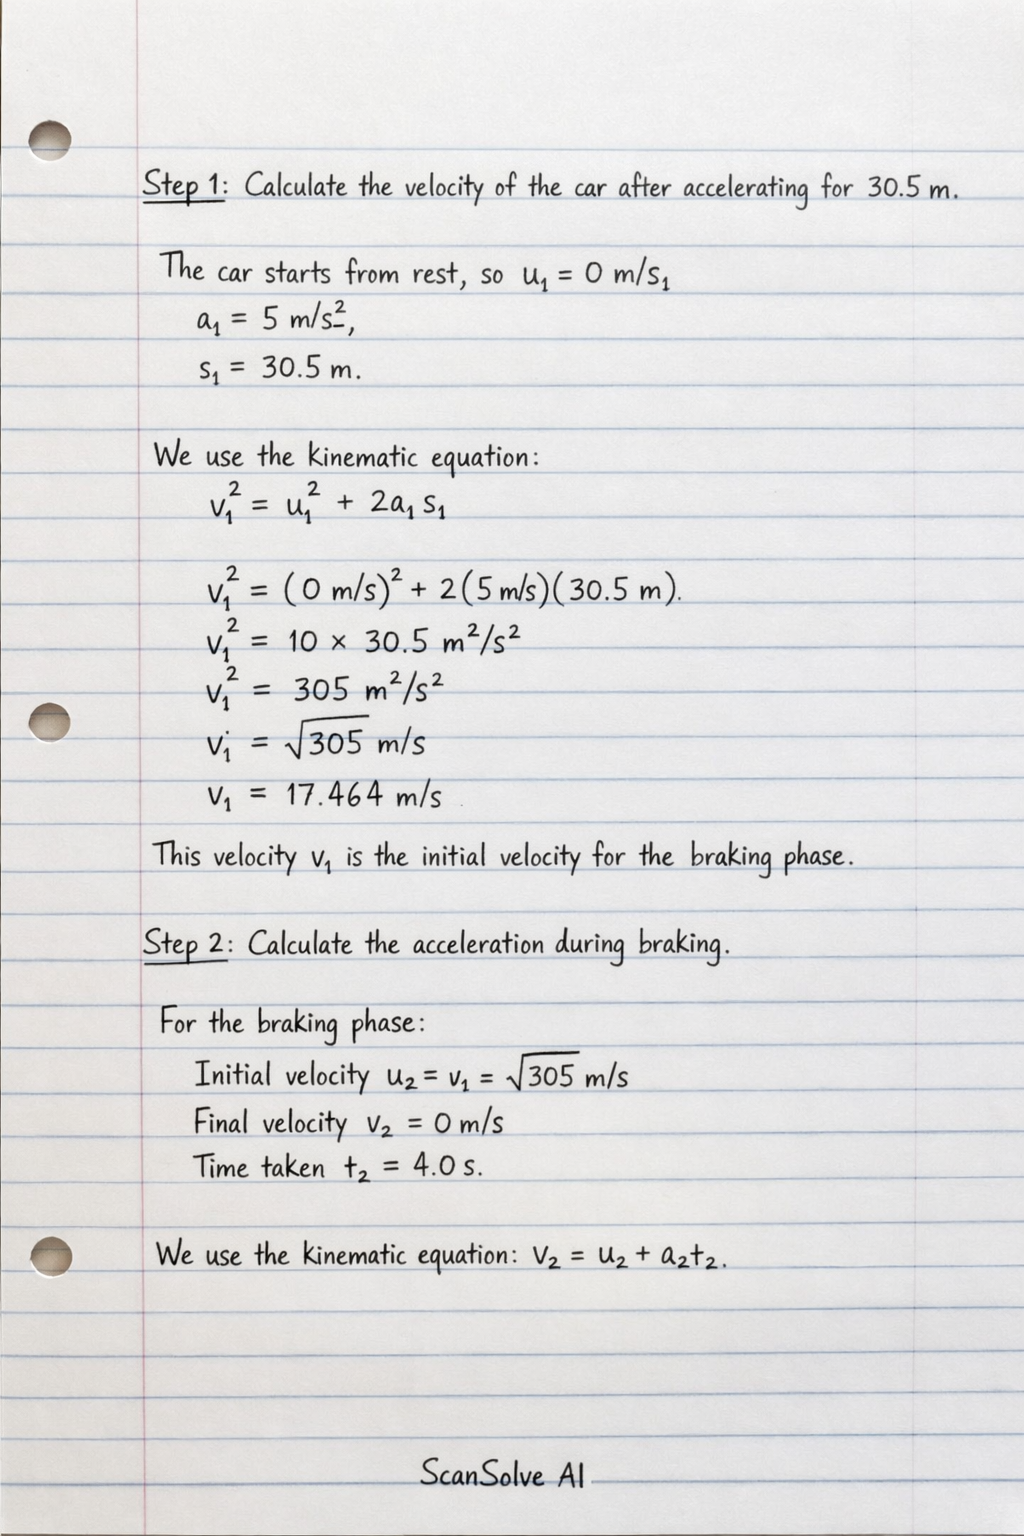 Step 1: Calculate the velocity of the car after accelerating for 30.5 m.
The car starts from rest, so u₁ = 0 m/s₁
a₁ = 5 m/s²,
s₁ = 30.5 m.
We use the kinematic equation:
v₁² = u₁² + 2a₁ s₁
v₁² = (0 m/s)² + 2(5 m/s)(30.5 m).
v₁² = 10 × 30.5 m²/s²
v₁² = 305 m²/s²
v₁ = √305 m/s
v₁ = 17.464 m/s
This velocity v₁ is the initial velocity for the braking phase.
Step 2: Calculate the acceleration during braking.
For the braking phase:
Initial velocity u₂ = v₁ = √305 m/s
Final velocity v₂ = 0 m/s
Time taken t₂ = 4.0 s.
We use the kinematic equation: v₂ = u₂ + a₂t₂.
ScanSolve AI